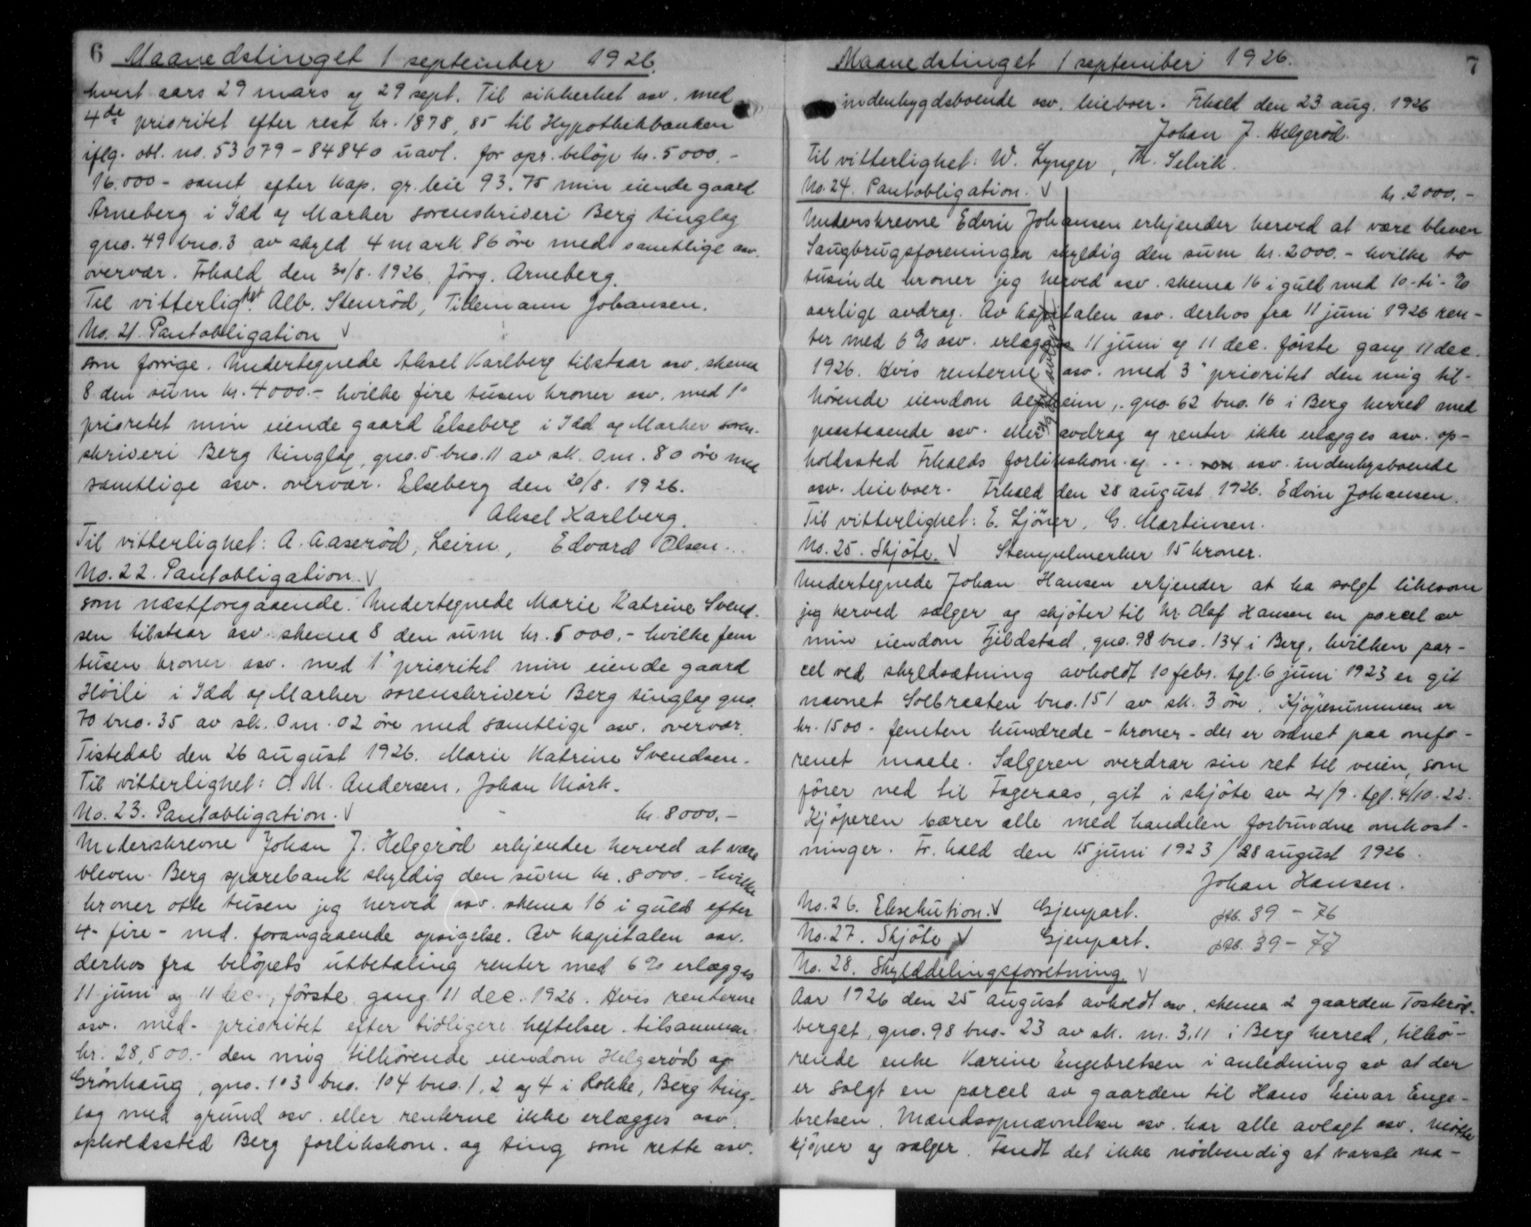 6 Maanedstinget 1 september 1926.
hvert aars 29 mars og 29 sept. Til sikkerhet osv. med
4de prioritet efter rest kr. 1878,85 til Hypothekbanken
iflg. obl. no. 53079 - 84840 uavl. for opr. beløp kr. 5000.-
16.000 - samt efter kap. gr. leie 93.75 min eiende gaard
Arneberg i Idd og Marker sorenskriveri Berg tinglag
gno. 49 bno. 3 av skyld 4 mark 86 öre med samtlige osv.
overvær. Frhald den 30/8. 1926. Jörg. Arneberg.
Til vitterlighet: Alb. Stenröd, Tillemann Johansen.
No. 21. Pantobligation √
som forrige. Undertegnede Aksel Karlberg tilstaar osv. skema
8 den sum kr. 4000.- hvilke fire tusen kroner osv. med 1°
prioritet min eiende gaard Elseberg i Idd og Marker soren-
skriveri Berg tinglag, gno. 5 bno. 11 av sk. 0 m. 80 öre med
samtlige osv. overvær. Elseberg den 20/8. 1926.
Aksel Karlberg.
Til vitterlighet: A. Aaseröd, Leirn, Edvard Olsen...
No. 22. Pantobligation. √
som næstforegaaende. Undertegnede Marie Katrine Svend-
sen tilstaar osv. skema 8 den sum kr. 5000.- hvilke fem
tusen kroner osv. med 1° prioritet min eiende gaard
Höili i Idd og Marker sorenskriveri Berg tinglag gno.
70 bno. 35 av sk. 0 m. 02 öre med samtlige osv. overvær.
Tistedal den 26 august 1926. Marie Katrine Svendsen.
Til vitterlighet: O. M. Andersen. Johan Mörk.
No. 23. Pantobligation. √ kr. 8000.-
Underskrevne Johan J. Helgeröd erkjender herved at være
bleven Berg sparebank skyldig den sum kr. 8000.- hvilke
kroner otte tusen jeg herved osv. skema 16 i guld efter
4- fire - md. forangaaende opsigelse. Av kapitalen osv.
derhos fra belöpets utbetaling renter med 6% erlægges
11 juni og 11 dec., förste gang 11 dec. 1926. Hvis renterne
osv. med - prioritet efter tidligere heftelser tilsammen
kr. 28,500.- den mig tilhörende eiendom Helgeröd og
Grönhaug, gno. 103 bno. 104 bno. 1, 2 og 4 i Rokke, Berg ting-
lag med grund osv. eller renterne ikke erlægges osv.
opholdssted Berg forlikskom. og ting som rette osv.
Maanedstinget 1 september 1926. 7
indenbygdsboende osv. leieboer. Frhald den 23 aug. 1926
Johan J. Helgeröd.
Til vitterlighet: W. Lynger, Th. Selvik.
No. 24. Pantobligation. √ kr. 2000.-
Underskrevne Edvin Johansen erkjender herved at være bleven
Saugbrugsforeningen skyldig den sum kr. 2000.- hvilke to
tusinde kroner jeg herved osv. skema 16 i guld med 10-ti-%
aarlige avdrag. Av kapitalen osv. derhos fra 11 juni 1926 ren-
ter med 6% osv. erlægges 11 juni og 11 dec. förste gang 11 dec.
1926. Hvis renterne osv. med 3° prioritet den mig til-
hörende eiendom Alfheim, gno. 62 bno. 16 i Berg herred med
paastaaende osv. eller avdrag og renter ikke erlægges osv. op-
holdssted Frhalds forlikskom. og ... osv. indenbysboende
osv. leieboer. Frhald den 28 august 1926. Edvin Johansen.
Til vitterlighet: E. Ljöner. G. Martinsen.
No. 25. Skjöte. √ Stempelmerker 15 kroner.
Undertegnede Johan Hansen erkjender at ha solgt likesom
jeg herved sælger og skjöter til hr. Olaf Hansen en parcel av
min eiendom Fjeldstad, gno. 98 bno. 134 i Berg, hvilken par-
cel ved skyldsætning avholdt 10 febr. tgl. 6 juni 1923 er git
navnet Solbraaten bno. 151 av sk. 3 öre. Kjöpesummen er
kr. 1500 - femten hundrede - kroner - der er ordnet paa omfo-
renet maate. Sælgeren overdrar sin ret til veien, som
förer ned til Fageraas, git i skjöte av 21/9. tgl. 4/10. 22.
Kjöperen bærer alle med handelen forbundne omkost-
ninger. Fr.hald den 15 juni 1923 / 28 august 1926.
Johan Hansen.
No. 26. Eksekution. √ Gjenpart. ptb. 39 - 76
No. 27. Skjöte √ Gjenpart. ptb. 39 - 77
No. 28. Skylddelingsforretning. √
Aar 1926 den 25 august avholdt osv. skema 2 gaarden Tosteröd-
berget, gno. 98 bno. 23 av sk. m. 3.11 i Berg herred, tilhö-
rende enke Karine Engebretsen i anledning av at der
er solgt en parcel av gaarden til Hans Einar Enge-
bretsen. Mændsopnævnelsen osv. har alle avlagt osv. mötte
kjöper og sælger. Fandt det ikke nödvendig at varsle na-